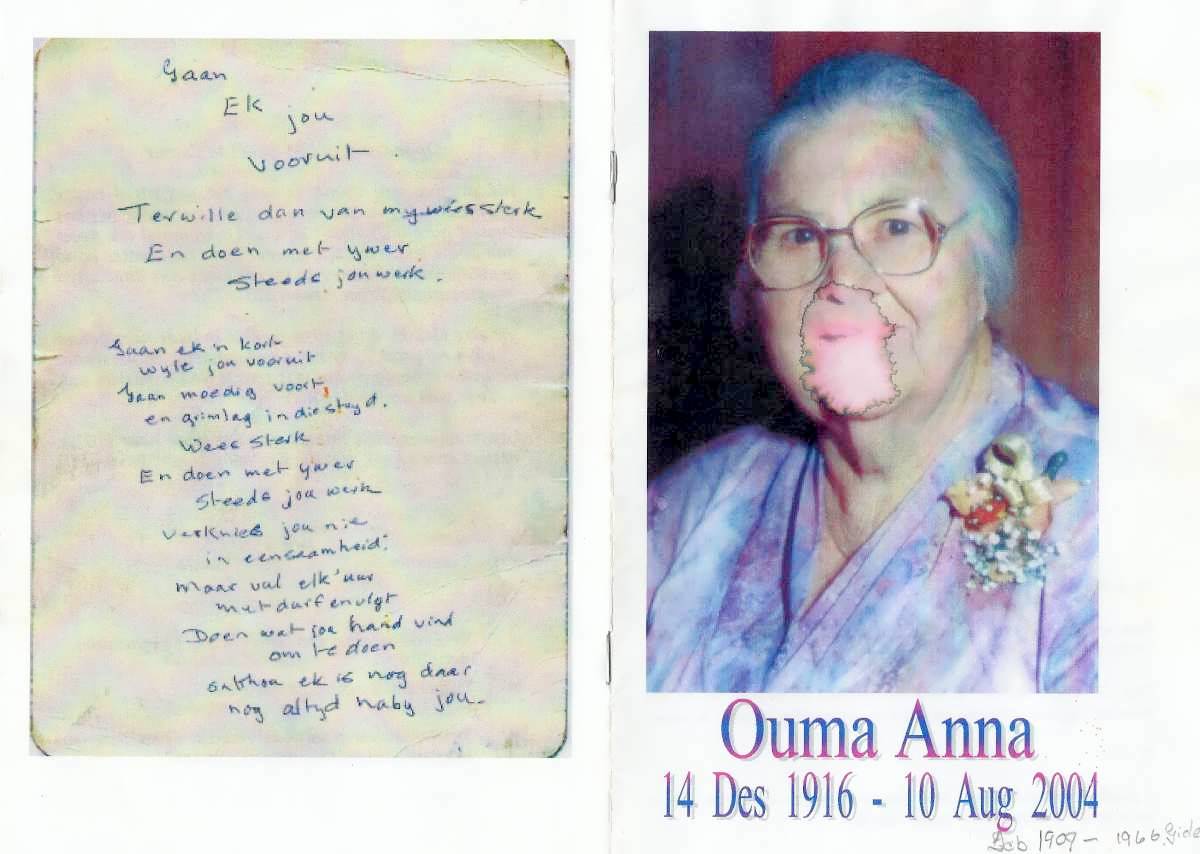 Gaan
Ek jou
vooruit.
Terwille dan van my wees sterk
En doen met ywer
Steeds jou werk.
Gaan ek 'n kort
wyle jou vooruit
Gaan moedig voort,
en grimlag in die stryd.
Wees Sterk
En doen met ywer
Steeds jou werk
verknies jou nie
in eensaamheid:
Maar vul elk 'uur
met durf en vlyt
Doen wat jou hand vind
om te doen
onthou ek is nog daar
nog altyd naby jou.
Ouma Anna
14 Des 1916 - 10 Aug 2004
1909 - 1966